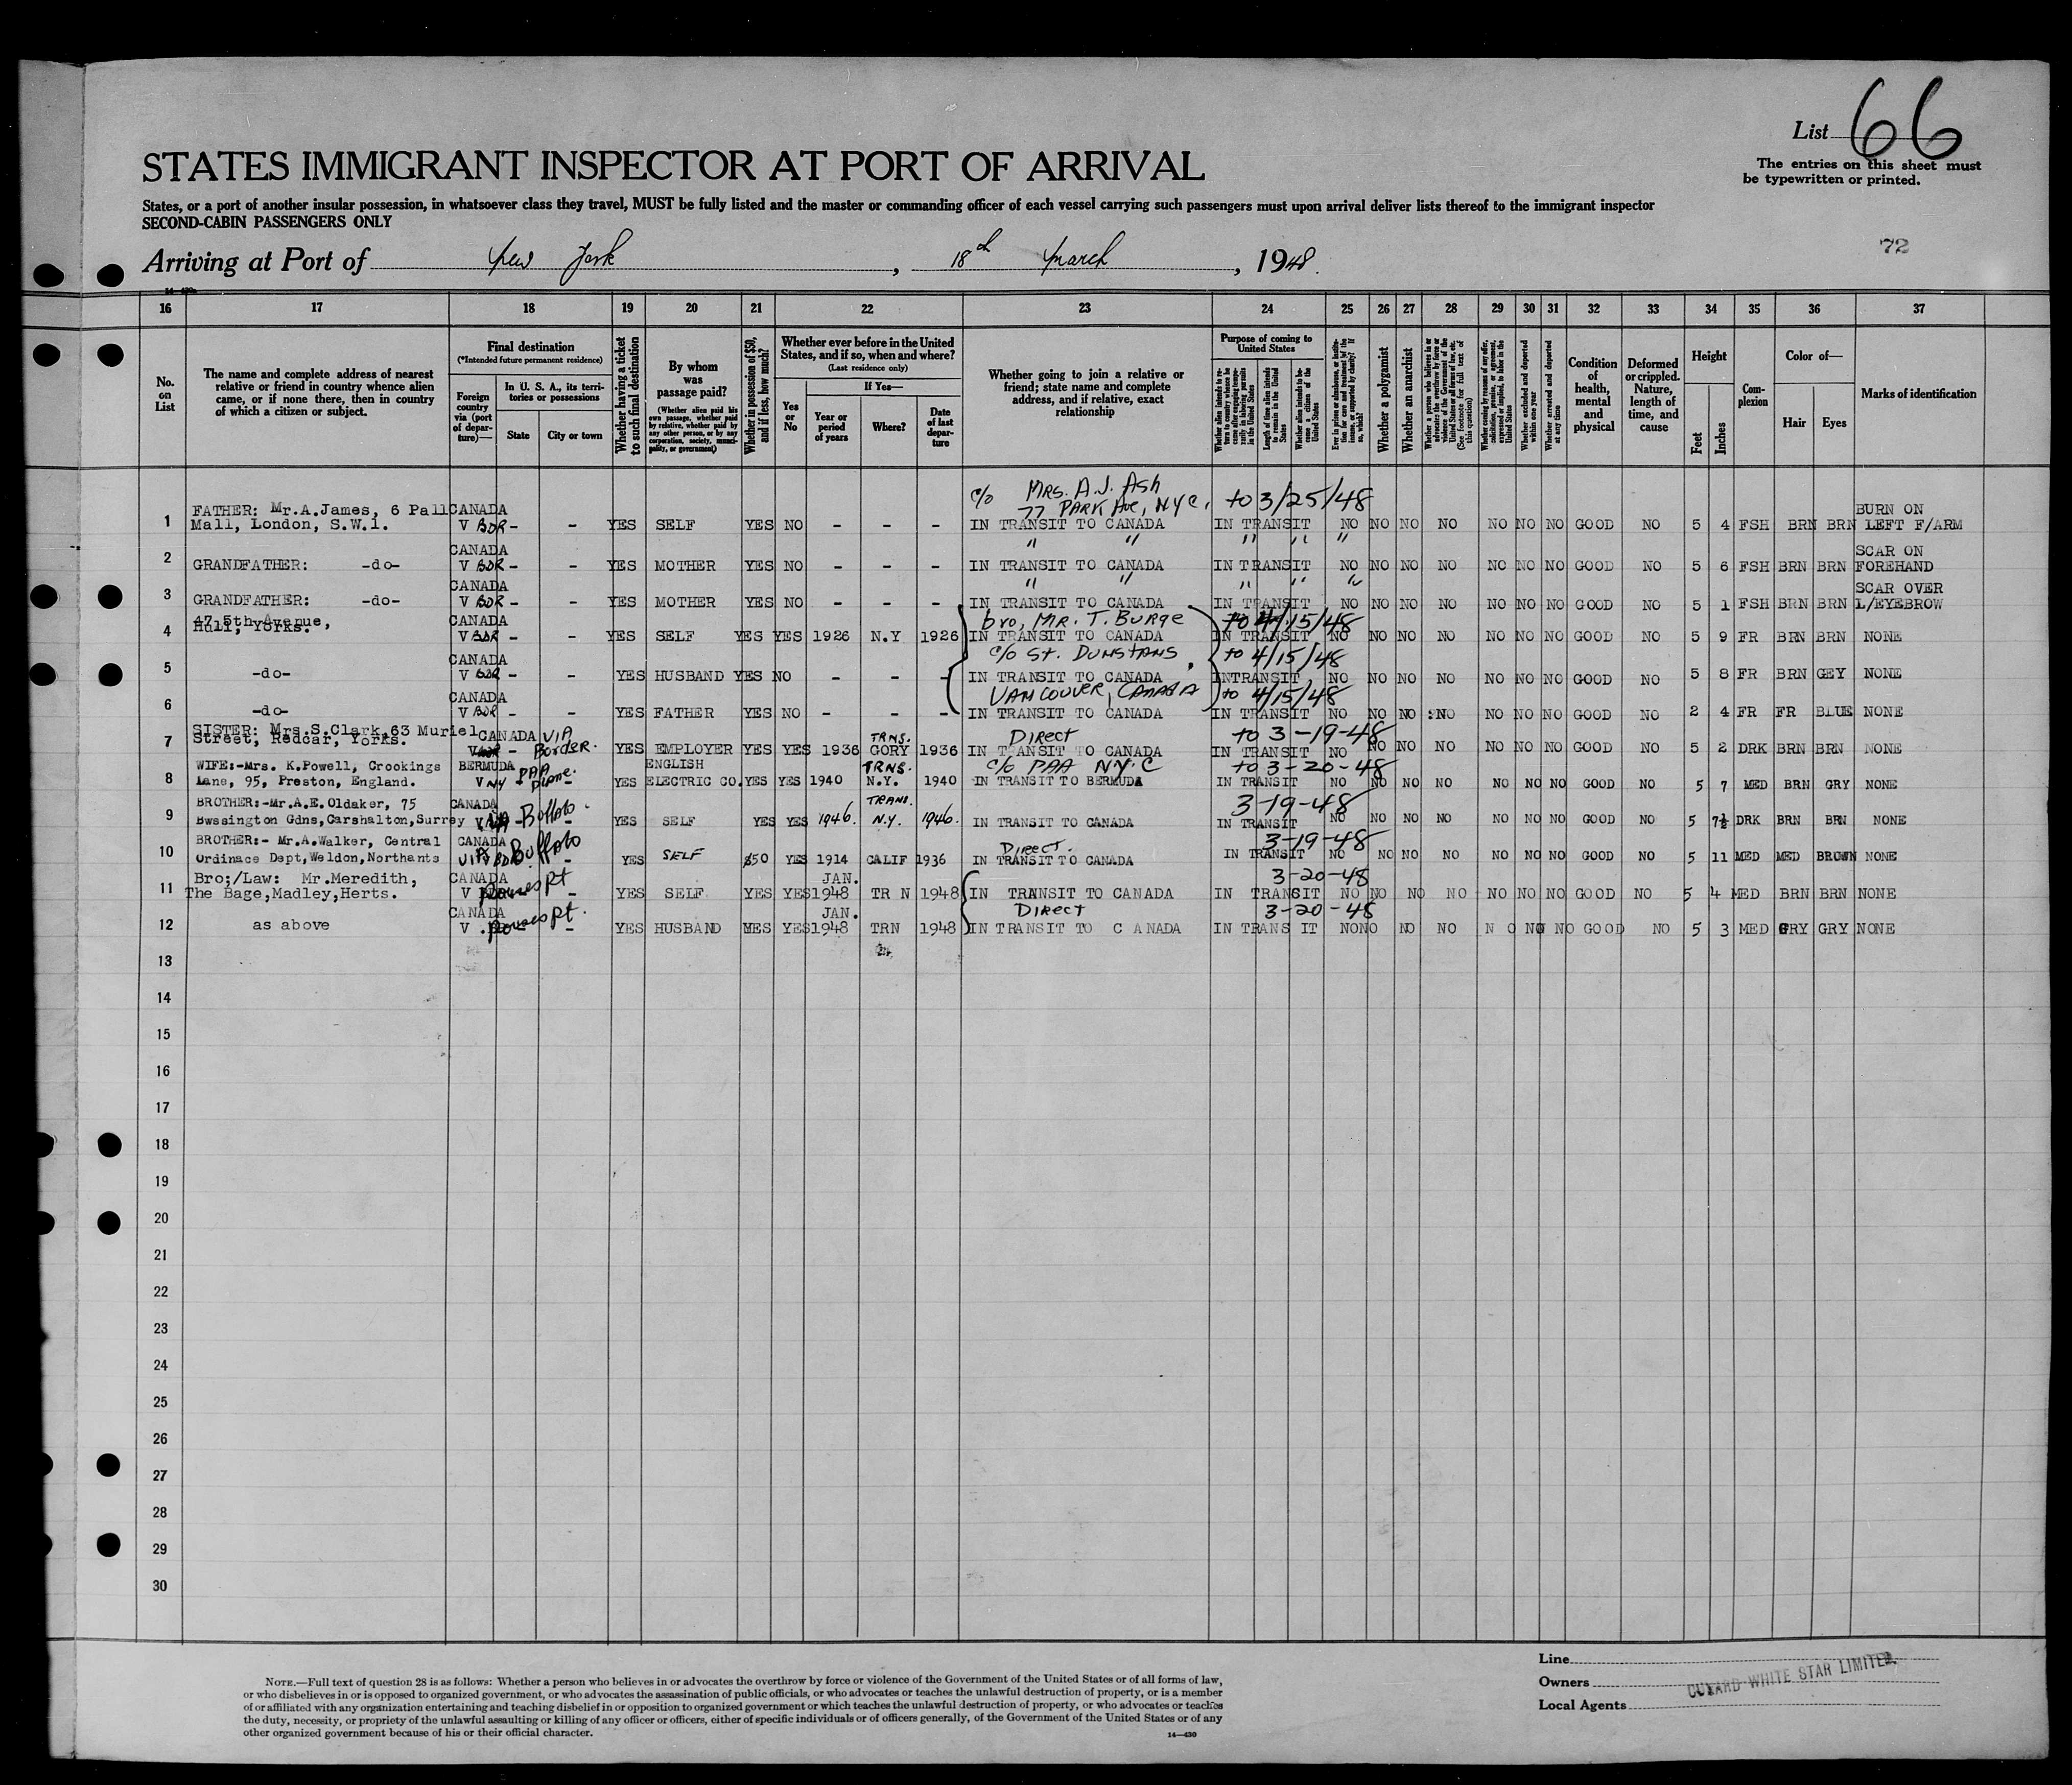 List 66
The entries on this sheet must
be typewritten or printed.
STATES IMMIGRANT INSPECTOR AT PORT OF ARRIVAL
States, or a port of another insular possession, in whatsoever class they travel, MUST be fully listed and the master or commanding officer of each vessel carrying such passengers must upon arrival deliver lists thereof to the immigrant inspector
SECOND-CABIN PASSENGERS ONLY
72
Arriving at Port of New York, 18th March, 1948.
16 17 18 19 20 21 22 23 24 25 26 27 28 29 30 31 32 33 34 35 36 37
No. on List
The name and complete address of nearest
relative or friend in country whence alien
came, or if none there, then in country
of which a citizen or subject.
Final destination
(*Intended future permanent residence)
Foreign country via (port of departure)—
In U. S. A., its territories or possessions
State City or town
Whether having a ticket to such final destination
By whom was passage paid?
(Whether alien paid his own passage, whether paid by relative, whether paid by any other person, or by any corporation, society, municipality, or government)
Whether in possession of $50, and if less, how much?
Whether ever before in the United States, and if so, when and where?
(Last residence only)
Yes or No
If Yes—
Year or period of years
Where?
Date of last departure
Whether going to join a relative or
friend; state name and complete
address, and if relative, exact
relationship
Purpose of coming to United States
Length of time alien intends to remain in the United States
Whether alien intends to become a citizen of the United States
Whether a polygamist
Whether an anarchist
Whether excluded and deported within one year
Whether arrested and deported at any time
Condition of health, mental and physical
Deformed or crippled. Nature, length of time, and cause
Height
Feet Inches
Complexion
Color of—
Hair Eyes
Marks of identification
c/o Mrs. A.J. Ash
77 Park Ave, NYC, to 3/25/48
FATHER: Mr.A.James, 6 Pall CANADA BURN ON
1 Mall, London, S.W.1. V BDR - - YES SELF YES NO - - - IN TRANSIT TO CANADA IN TRANSIT NO NO NO NO NO NO NO GOOD NO 5 4 FSH BRN BRN LEFT F/ARM
CANADA " " " " " SCAR ON
2 GRANDFATHER: -do- V BDR - - YES MOTHER YES NO - - - IN TRANSIT TO CANADA IN TRANSIT NO NO NO NO NO NO NO GOOD NO 5 6 FSH BRN BRN FOREHAND
CANADA " " " " " SCAR OVER
3 GRANDFATHER: -do- V BDR - - YES MOTHER YES NO - - - IN TRANSIT TO CANADA IN TRANSIT NO NO NO NO NO NO NO GOOD NO 5 1 FSH BRN BRN L/EYEBROW
47 5th Avenue, CANADA bro, Mr. T. Burge to 4/15/48
4 Hull, Yorks. V BDR - - YES SELF YES YES 1926 N.Y 1926 IN TRANSIT TO CANADA IN TRANSIT NO NO NO NO NO NO NO GOOD NO 5 9 FR BRN BRN NONE
CANADA c/o St. Dunstans, to 4/15/48
5 -do- V BDR - - YES HUSBAND YES NO - - - IN TRANSIT TO CANADA INTRANSIT NO NO NO NO NO NO NO GOOD NO 5 8 FR BRN GEY NONE
CANADA Vancouver, Canada to 4/15/48
6 -do- V BDR - - YES FATHER YES NO - - - IN TRANSIT TO CANADA IN TRANSIT NO NO NO NO NO NO NO GOOD NO 2 4 FR FR BLUE NONE
SISTER: Mrs.S.Clark,63 Muriel CANADA VIA TRNS. Direct to 3-19-48
7 Street, Redcar, Yorks. - Border. YES EMPLOYER YES YES 1936 GORY 1936 IN TRANSIT TO CANADA IN TRANSIT NO NO NO NO NO NO NO GOOD NO 5 2 DRK BRN BRN NONE
WIFE:-Mrs. K.Powell, Crookings BERMUDA PAA ENGLISH TRNS. c/o PAA NYC to 3-20-48
8 Lane, 95, Preston, England. V NY - Plane. YES ELECTRIC CO. YES YES 1940 N.Y. 1940 IN TRANSIT TO BERMUDA IN TRANSIT NO NO NO NO NO NO NO GOOD NO 5 7 MED BRN GRY NONE
BROTHER:-Mr.A.E.Oldaker, 75 CANADA TRANS. 3-19-48
9 Bwssington Gdns,Carshalton,Surrey VIA Buffalo. YES SELF YES YES 1946. N.Y. 1946. IN TRANSIT TO CANADA IN TRANSIT NO NO NO NO NO NO NO GOOD NO 5 7½ DRK BRN BRN NONE
BROTHER:- Mr.A.Walker, Central CANADA Direct. 3-19-48
10 Ordinace Dept,Weldon,Northants VIA Buffalo - YES SELF $50 YES 1914 CALIF 1936 IN TRANSIT TO CANADA IN TRANSIT NO NO NO NO NO NO NO GOOD NO 5 11 MED MED BROWN NONE
Bro;/Law: Mr.Meredith, CANADA JAN. 3-20-48
11 The Bage,Madley,Herts. V Rouses Pt - YES SELF YES YES 1948 TR N 1948 IN TRANSIT TO CANADA IN TRANSIT NO NO NO NO NO NO NO GOOD NO 5 4 MED BRN BRN NONE
CANADA JAN. Direct 3-20-48
12 as above V . Rouses Pt. - YES HUSBAND YES YES 1948 TRN 1948 IN TRANSIT TO C ANADA IN TRANS IT NO NO NO NO N O NO NO GOOD NO 5 3 MED GRY GRY NONE
13
14
15
16
17
18
19
20
21
22
23
24
25
26
27
28
29
30
NOTE.—Full text of question 28 is as follows: Whether a person who believes in or advocates the overthrow by force or violence of the Government of the United States or of all forms of law,
or who disbelieves in or is opposed to organized government, or who advocates the assassination of public officials, or who advocates or teaches the unlawful destruction of property, or is a member
of or affiliated with any organization entertaining and teaching disbelief in or opposition to organized government or which teaches the unlawful destruction of property, or who advocates or teaches
the duty, necessity, or propriety of the unlawful assaulting or killing of any officer or officers, either of specific individuals or of officers generally, of the Government of the United States or of any
other organized government because of his or their official character.
14—430
Line
Owners CUNARD WHITE STAR LIMITED.
Local Agents